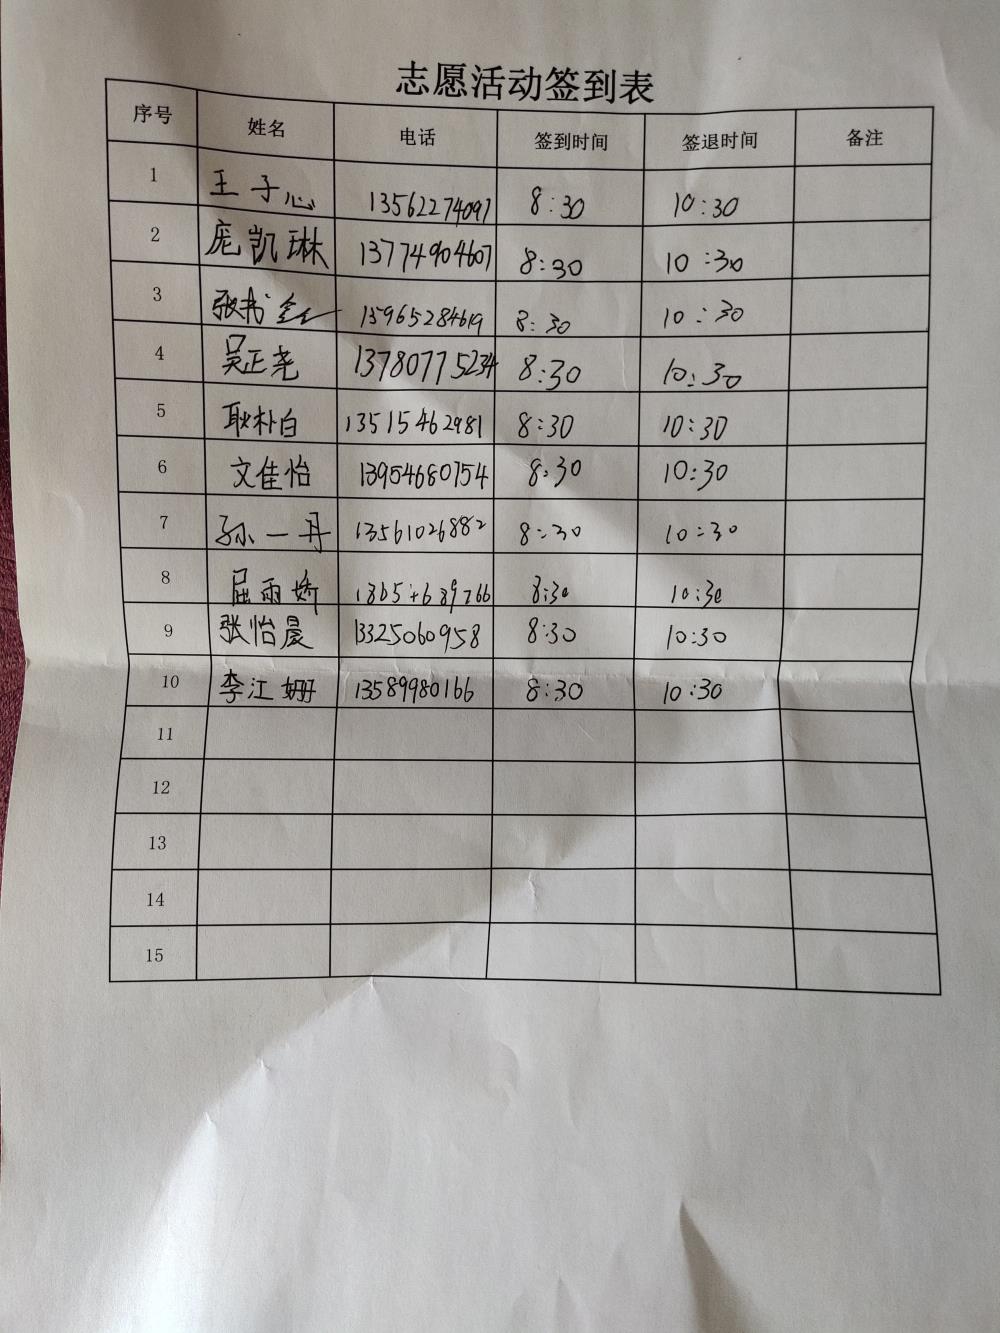 志愿活动签到表
序号 姓名 电话 签到时间 签退时间 备注
1 王子心 13562274097 8:30 10:30
2 庞凯琳 13774904607 8:30 10:30
3 张书 15965284619 8:30 10:30
4 吴正尧 13780775234 8:30 10:30
5 耿朴白 13515462981 8:30 10:30
6 文佳怡 13954680754 8:30 10:30
7 孙一丹 13561026882 8:30 10:30
8 屈雨娇 8:30 10:30
9 张怡晨 13325060958 8:30 10:30
10 李江姗 13589980166 8:30 10:30
11
12
13
14
15